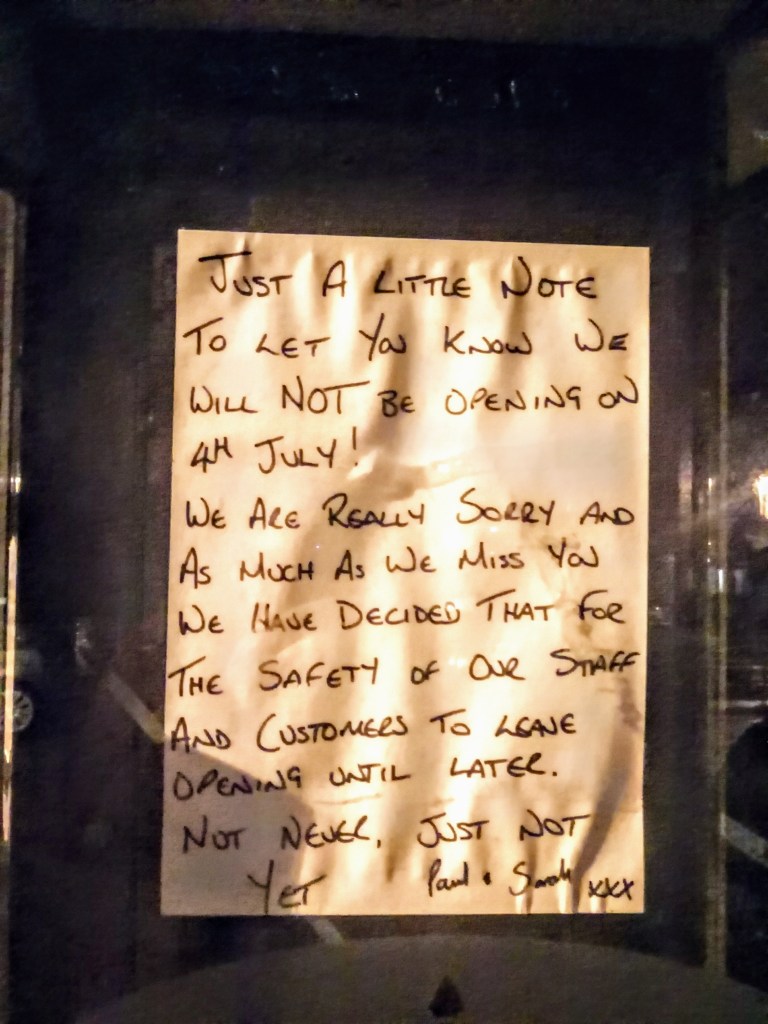 JUST A LITTLE NOTE
TO LET YOU KNOW WE
WILL NOT BE OPENING ON
4TH JULY!
WE ARE REALLY SORRY AND
AS MUCH AS WE MISS YOU
WE HAVE DECIDED THAT FOR
THE SAFETY OF OUR STAFF
AND CUSTOMERS TO LEAVE
OPENING UNTIL LATER.
NOT NEVER, JUST NOT
YET Paul & Sarah xxx